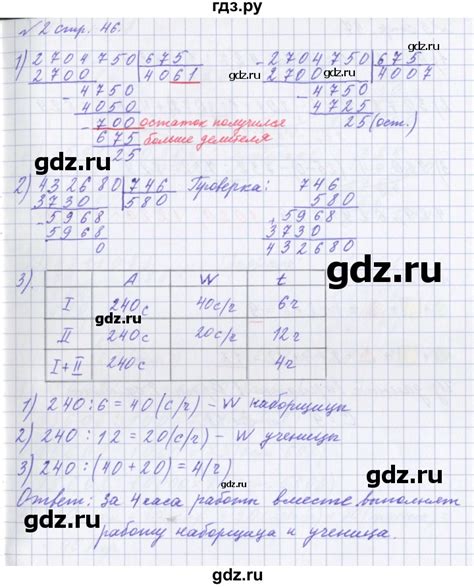 гдз.ру
№2 стр. 46.
1) 2704750 | 675
2700 | 4061
4750
4050
700 остаток получился
675 больше делителя
25
2704750 | 675
2700 | 4007
4750
4725
25 (ост.)
2) 432680 | 746
3730 | 580
5968
5968
0
Проверка:
746
580
5968
3730
432680
gdz.ru
gdz.ru
gdz.ru
3).
A W t
I 240с 40с/ч 6ч
II 240с 20с/ч 12ч
I+II 240с 4ч
gdz.ru
gdz.ru
1) 240:6=40(с/ч) – W наборщицы
2) 240:12=20(с/ч) – W ученицы
3) 240:(40+20)=4(ч)
Ответ: за 4 часа работы вместе выполнят
работу наборщица и ученица.
gdz.ru
gdz.ru